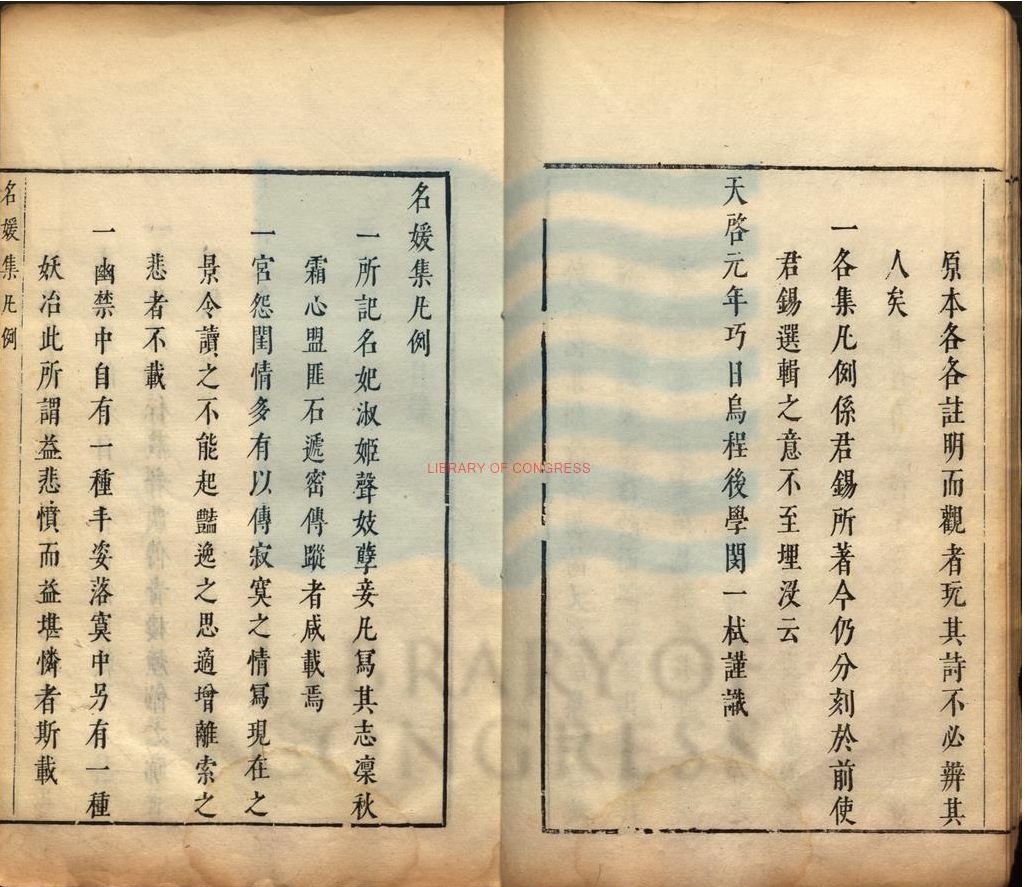 原本各各註明而觀者玩其詩不必辨其
人矣
一各集凡例係君錫所著今仍分刻於前使
君錫選輯之意不至埋沒云
天啓元年巧日烏程後學閔一栻謹識
名媛集凡例
一所記名妃淑姬聲妓孽妾凡寫其志凜秋
霜心盟匪石遞密傳蹤者咸載焉
一宮怨閨情多有以傳寂寞之情寫現在之
景令讀之不能起豔逸之思適增離索之
悲者不載
一幽禁中自有一種丰姿落寞中另有一種
妖冶此所謂益悲憤而益堪憐者斯載
名媛集凡例
LIBRARY OF CONGRESS